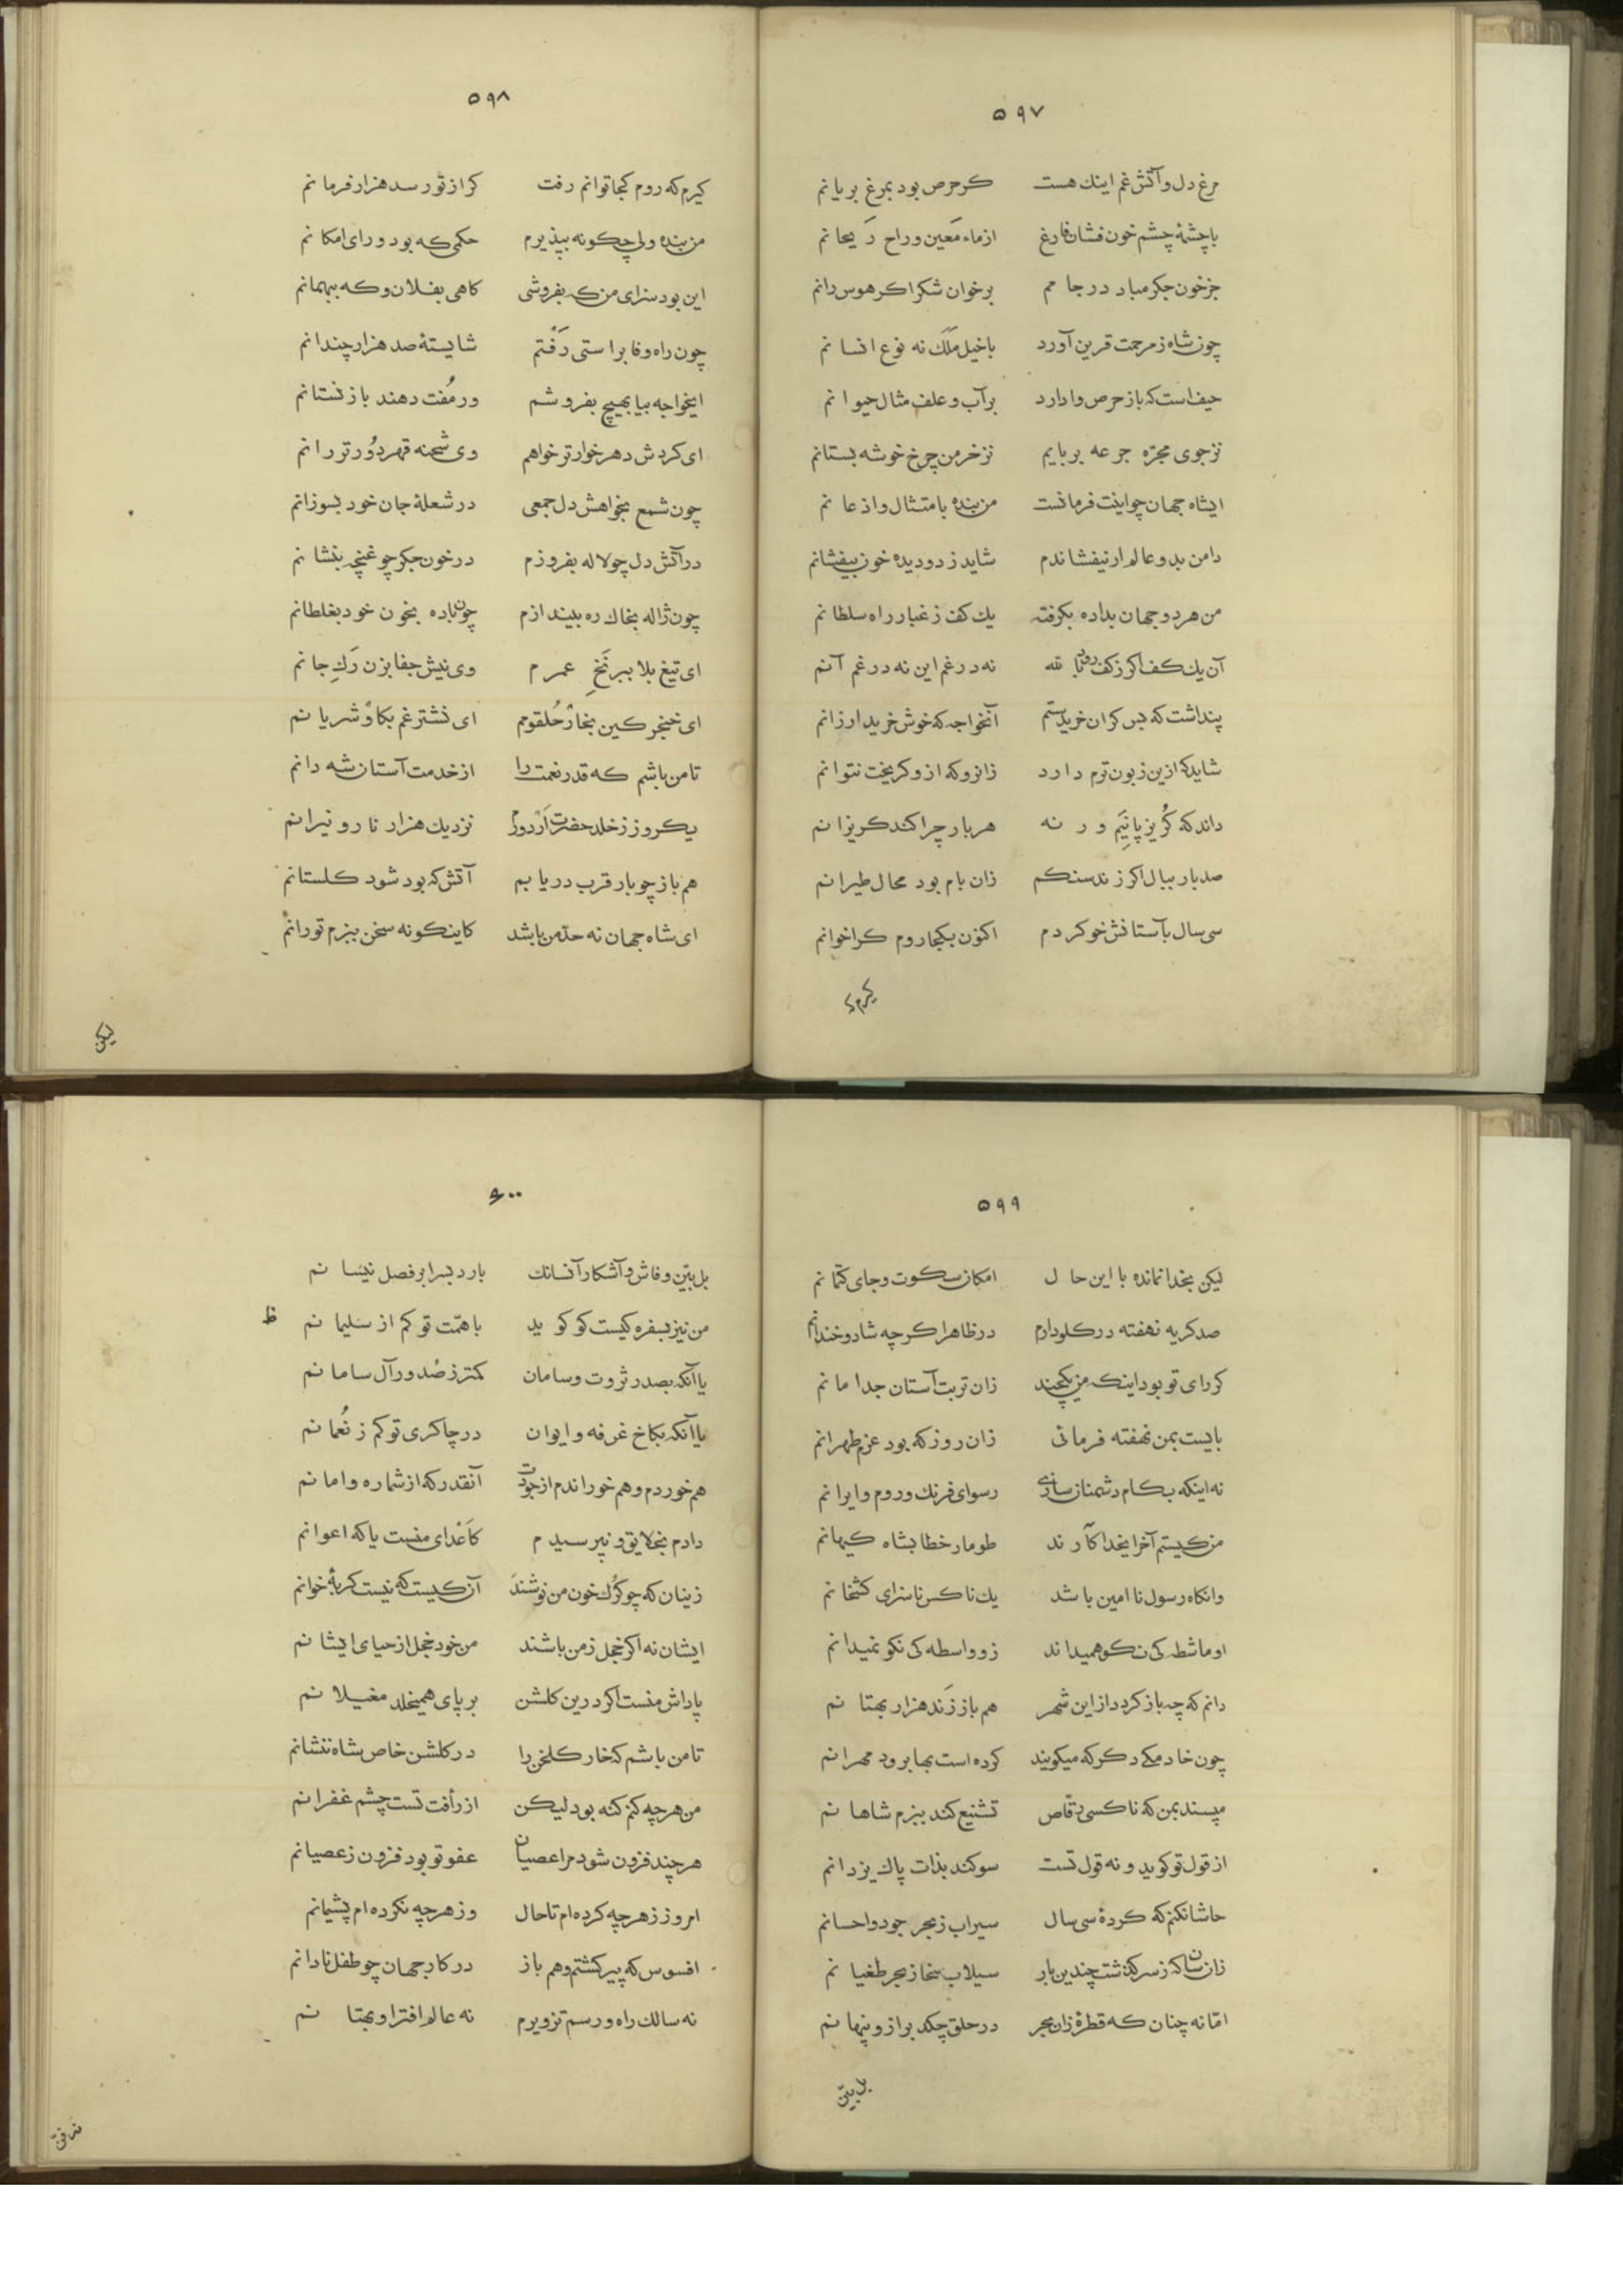 ۵۹۷
مرغ دل و آتش غم اینك هست كر حرص بود بمرغ بریانم
با چشمهٔ چشم خون فشان فارغ از ماء مَعین و راح رَیحانم
جز خون جكر مباد در جامم بر خوان شكر اكر هوس رانم
چون شاه ز مرحمت قرین آورد با خیل مَلَك نه نوع انسانم
حیف است كه باز حرص وا دارد بر آب و علف مثال حیوانم
نز جوی مجرّه جرعه بربایم نز خرمن چرخ خوشه بستانم
ایشاه جهان چو اینت فرمانست من بنده بامتثال و اذعانم
دامن بدو عالم ار نیفشاندم شاید ز دو دیده خون بیفشانم
من هر دو جهان بداده بكرفته یك كف ز غبار راه سلطانم
آن یك كف اكر ز كف رود بالله نه در غم این نه در غم آنم
پنداشت كه بس كران خریدستم آنخواجه كه خوش خرید ارزانم
شاید كه ازین زبون ترم دارد زانرو كه ازو كریخت نتوانم
داند كه كُریز پانِیَم ور نه هر بار چرا كند كریزانم
صد بار ببال اكر زند سنكم زان بام بود محال طیرانم
سی سال بآستانش خو كردم اكنون بكجا روم كرا خوانم
كیرم كه
۵۹۸
كیرم كه روم كجا توانم رفت كر از تو رسد هزار فرمانم
من بنده ولی چكونه بپذیرم حكمی كه بود ورای امكانم
این بود سزای من كه بفروشی كاهی بفلان و كه ببهمانم
چون راه وفا براستی رَفتم شایستهٔ صد هزار چندانم
ایخواجه بیا بهیچ بفروشم ور مُفت دهند باز نستانم
ای كردش دهر خوارتر خواهم وی شحنه قهر دُورتر رانم
چون شمع بخواهش دل جمعی در شعلهٔ جان خود بسوزانم
در آتش دل چو لاله بفروزم در خون جكر چو غنچه بنشانم
چون ژاله بخاك ره بیندازم چون باده بخون خود بغلطانم
ای تیغ بلا ببر نَخِ عمرم وی نیش جفا بزن رَكِ جانم
ای خنجر كین بخار حُلقومم ای نشتر غم بكاو شریانم
تا من باشم كه قدر نعمت را از خدمت آستان شه دانم
یكروز ز خلد حضرت اَر دورم نزدیك هزار نار و نیرانم
هم باز چو بار قرب دریابم آتش كه بود شود كلستانم
ای شاه جهان نه حدّ من باشد كاینكونه سخن ببزم تو رانم
لیكن
۵۹۹
لیكن بخدا نمانده با این حال امكان سكوت و جای كتمانم
صد كریه نهفته در كلو دارم در ظاهر اكر چه شاد و خندانم
كر رای تو بود اینكه من یكچند زان تربت آستان جدا مانم
بایست بمن نهفته فرمائی زان روز كه بود عزم طهرانم
نه اینكه بكام دشمنان سازی رسوای فرنك و روم و ایرانم
من كیستم آخر ایخدا كآرند طومار خطا بشاه كیهانم
وانكاه رسول نا امین باشد یك ناكس ناسزای كشخانم
او ماشطه كی نكو همیداند زو واسطه كی نكو نمیدانم
دانم كه چه باز كردد از این شهر هم باز زَند هزار بهتانم
چون خادمكی دكر كه میكویند كرده است بها برود مهرانم
مپسند بمن كه ناكسی رقّاص تشنیع كند ببزم شاهانم
از قول تو كوید و نه قول تست سوكند بذات پاك یزدانم
حاشا نكنم كه كردهٔ سی سال سیراب ز بحر جود و احسانم
زان سان كه ز سر كذشت چندین بار سیلاب سخا ز بحر طغیانم
امّا نه چنان كه قطرهٔ زان بحر در حلق چكد براز و پنهانم
بل بیّن
۶۰۰
بل بیّن و فاش و آشكار آنسانك بارد بسر ابر فصل نیسانم
من نیز بسفره كیست كو كوید با همّت تو كم از سلیمانم ظ
یا آنكه بصدر ثروت و سامان كمتر ز صُدور آل سامانم
یا آنكه بكاخ غرفه و ایوان در چاكری تو كم ز نُعمانم
هم خوردم و هم خوراندم از جودت آنقدر كه از شماره وا مانم
دادم بخلایق و نپرسیدم كاَعدای منست یا كه اعوانم
زینان كه چو كُرك خون من نوشند آن كیست كه نیست كربهٔ خوانم
ایشان نه اكر خجل ز من باشند من خود خجل از حیای ایشانم
پاداش منست اكر درین كلشن بر پای همیخلد مغیلانم
تا من باشم كه خار كلخن را در كلشن خاص شاه ننشانم
من هر چه كنم كنه بود لیكن از رأفت تست چشم غفرانم
هر چند فزون شود مرا عصیان عفو تو بود فزون ز عصیانم
امروز ز هر چه كرده ام تا حال وز هر چه نكرده ام پشیمانم
افسوس كه پیر كشتم و هم باز در كار جهان چو طفل نادانم
نه سالك راه و رسم تزویرم نه عالم افترا و بهتانم